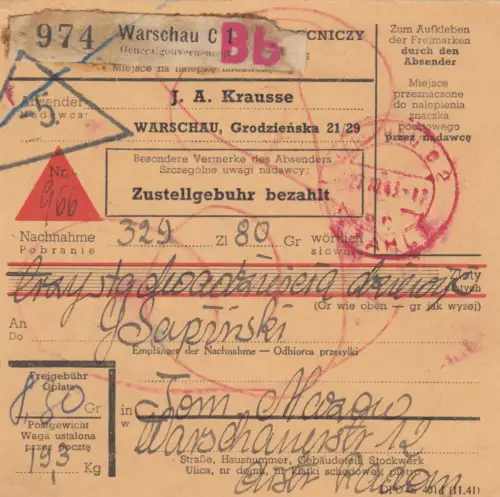 974 Warschau C 1 Bb CZNICZY
Generalgouvernement
Miejsce na nalepkę
Zum Aufkleben
der Freimarken
durch den
Absender
Miejsce
przeznaczone
do nalepienia
znaczka
pocztowego
przez nadawcę
Absender
Nadawca:
5.
J. A. Krausse
WARSCHAU, Grodzieńska 21/29
Besondere Vermerke des Absenders
Szczególne uwagi nadawcy:
Zustellgebuhr bezahlt
Nr.
966
Nachnahme 329 Zl 80 Gr wörtlich
Pobranie słownie
trzysta dwadzieścia dziewięć Zloty
złotych
(Gr wie oben — gr jak wyżej)
An
Do
G Sapiński
Empfänger der Nachnahme — Odbiorca przesyłki
Freigebühr
Opłata
8,80 Gr
Postgewicht
Waga ustalona
przez pocztę
193 Kg
in
w
Tom Mazow
Warschauerstr 12
Straße, Hausnummer, Gebäudeteil, Stockwerk
Ulica, nr domu, nr klatki schodowej, piętro
Distr Radom
(11.41)